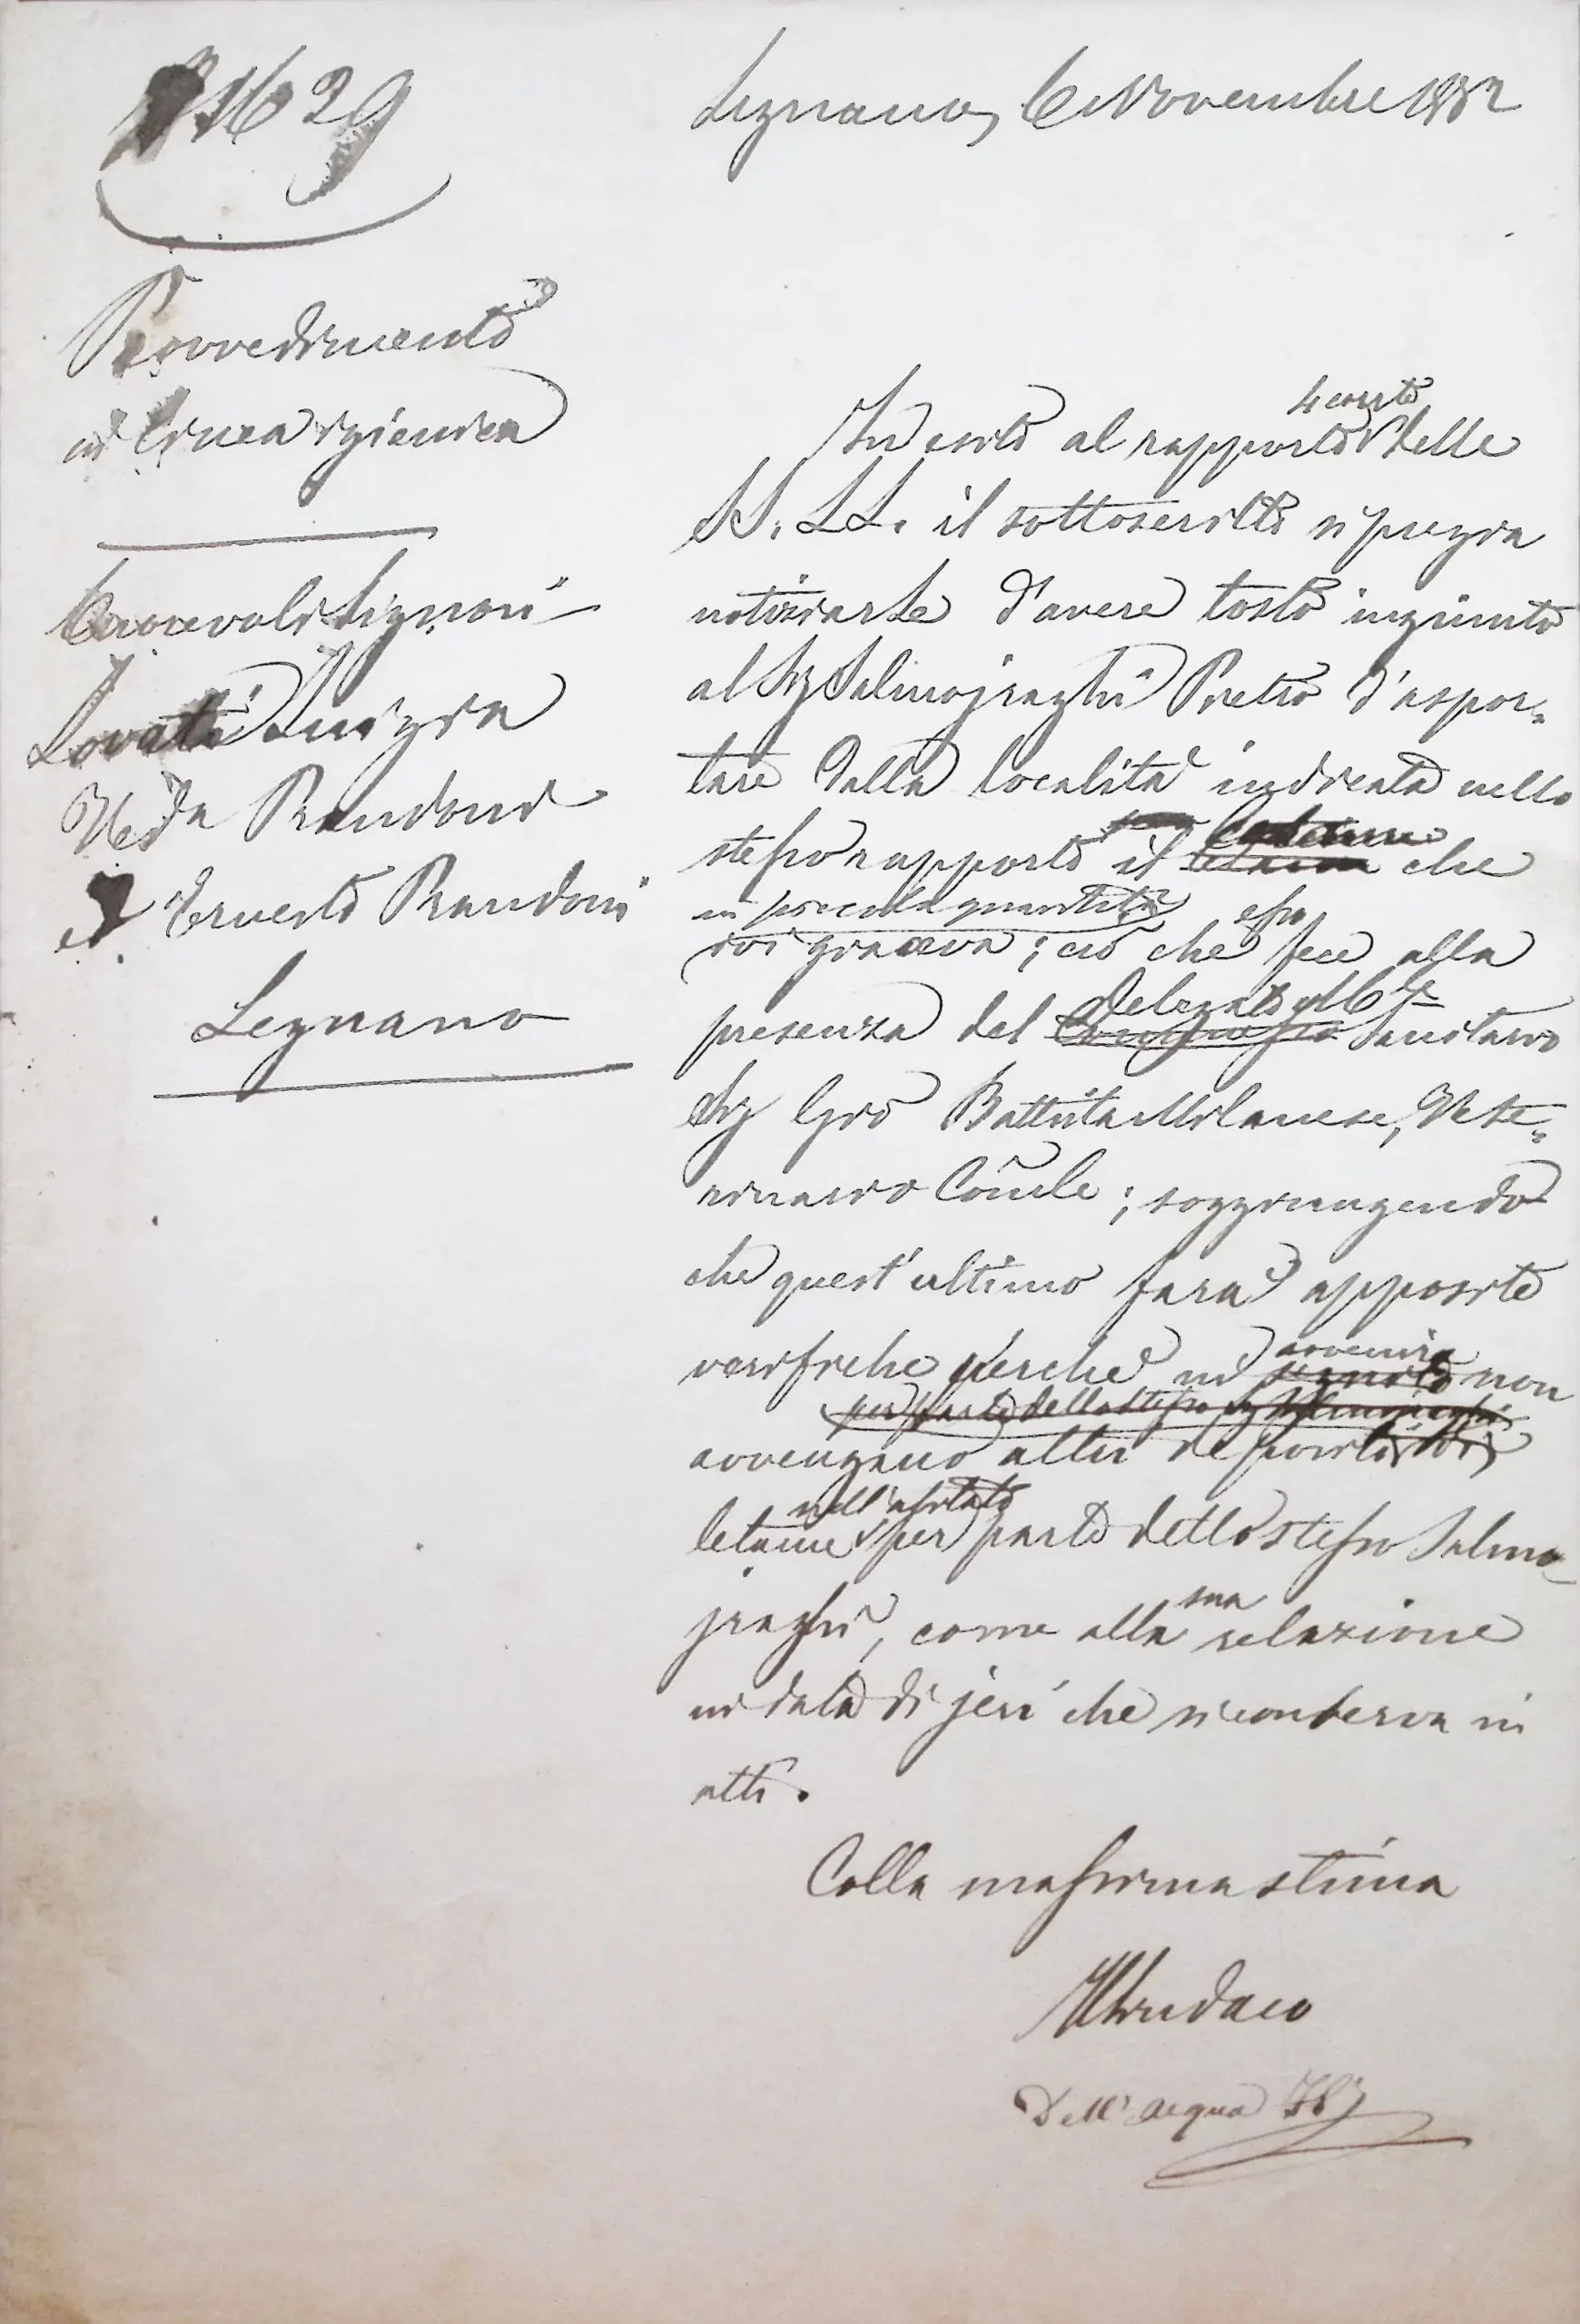 1629
Legnano, 6 Novembre 1882
Provvedimento
in linea igienica
Onorevoli Signori
Lovati Luigia
Ved.a Randoni
ed Ernesto Randoni
Legnano
4 corrte
In esito al rapporto delle
SS. LL. il sottoscritto si pregia
notiziarLe d'avere tosto ingiunto
al Sig Salmojraghi Pietro d'aspor-
tare dalla località indicata nello
stesso rapporto il letame che
in piccola quantità esso
ivi giaceva; ciò che fece alla
Delegato
presenza del Sanitario
Sig Gio Battista Milanese, Vete-
rinario Comle; soggiungendo
che quest'ultimo farà apposite
avvenire
verifiche perchè in seguito non
per parte dello stesso Sig Salmojraghi
avvengano altri depositi di
nell'abitato
letame per parte dello stesso Salmo-
sua
jraghi, come alla relazione
in data di jeri che si conserva in
atti.
Colla massima stima
Il Sindaco
Dell'Acqua